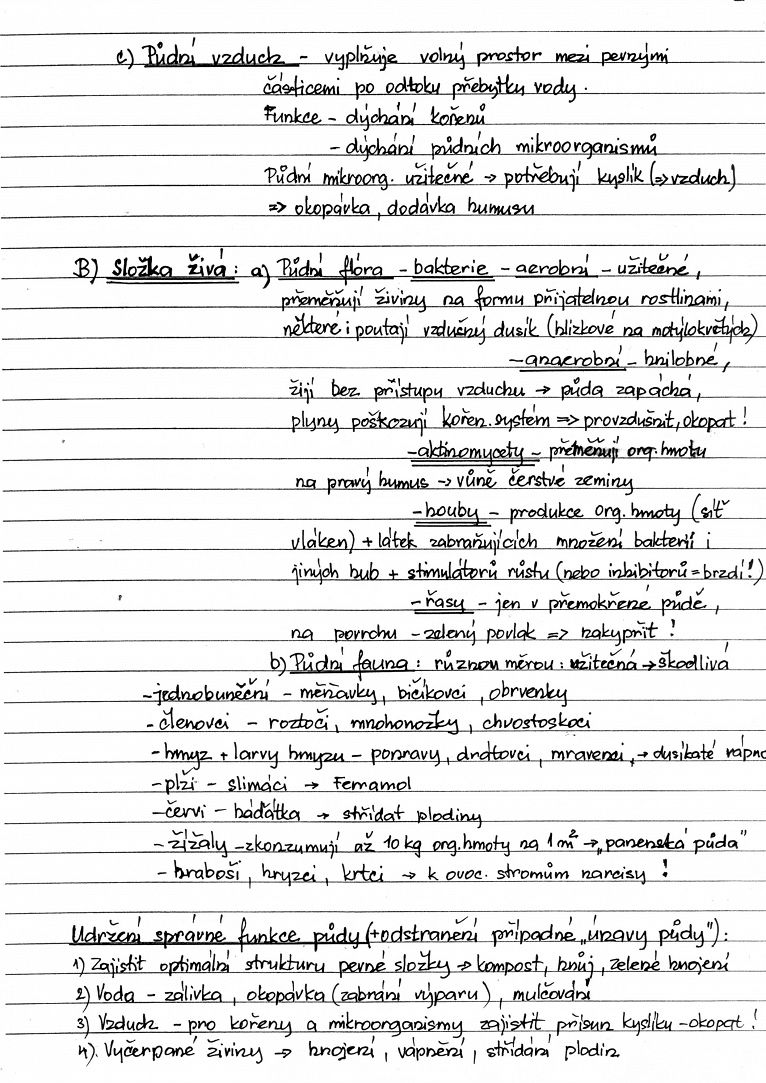 c) Půdní vzduch - vyplňuje volný prostor mezi pevnými
částicemi po odtoku přebytku vody.
Funkce - dýchání kořenů
- dýchání půdních mikroorganismů
Půdní mikroorg. užitečné → potřebují kyslík (⇒ vzduch)
⇒ okopávka, dodávka humusu
B) Složka živá: a) Půdní flóra - bakterie - aerobní - užitečné,
přeměňují živiny na formu přijatelnou rostlinami,
některé i poutají vzdušný dusík (hlízkové na motýlokvětých)
- anaerobní - hnilobné,
žijí bez přístupu vzduchu → půda zapáchá,
plyny poškozují kořen. systém ⇒ provzdušnit, okopat!
- aktinomycety - přeměňují org. hmotu
na pravý humus → vůně čerstvé zeminy
- houby - produkce org. hmoty (síť
vláken) + látek zabraňujících množení bakterií i
jiných hub + stimulátorů růstu (nebo inhibitorů = brzdí!)
- řasy - jen v přemokřené půdě,
na povrchu - zelený povlak ⇒ nakypřit!
b) Půdní fauna: různou měrou: užitečná → škodlivá
- jednobuněční - měňavky, bičíkovci, obrvenky
- členovci - roztoči, mnohonožky, chvostoskoci
- hmyz + larvy hmyzu - ponravy, drátovci, mravenci, → dusíkaté vápno
- plži - slimáci → Ferramol
- červi - háďátka → střídat plodiny
- žížaly - zkonzumují až 10 kg org. hmoty na 1 m² → „panenská půda"
- hraboši, hryzci, krtci → k ovoc. stromům narcisy!
Udržení správné funkce půdy (+ odstranění případné „únavy půdy"):
1) Zajistit optimální strukturu pevné složky → kompost, hnůj, zelené hnojení
2) Voda - zálivka, okopávka (zabrání výparu), mulčování
3) Vzduch - pro kořeny a mikroorganismy zajistit přísun kyslíku - okopat!
4). Vyčerpané živiny → hnojení, vápnění, střídání plodin